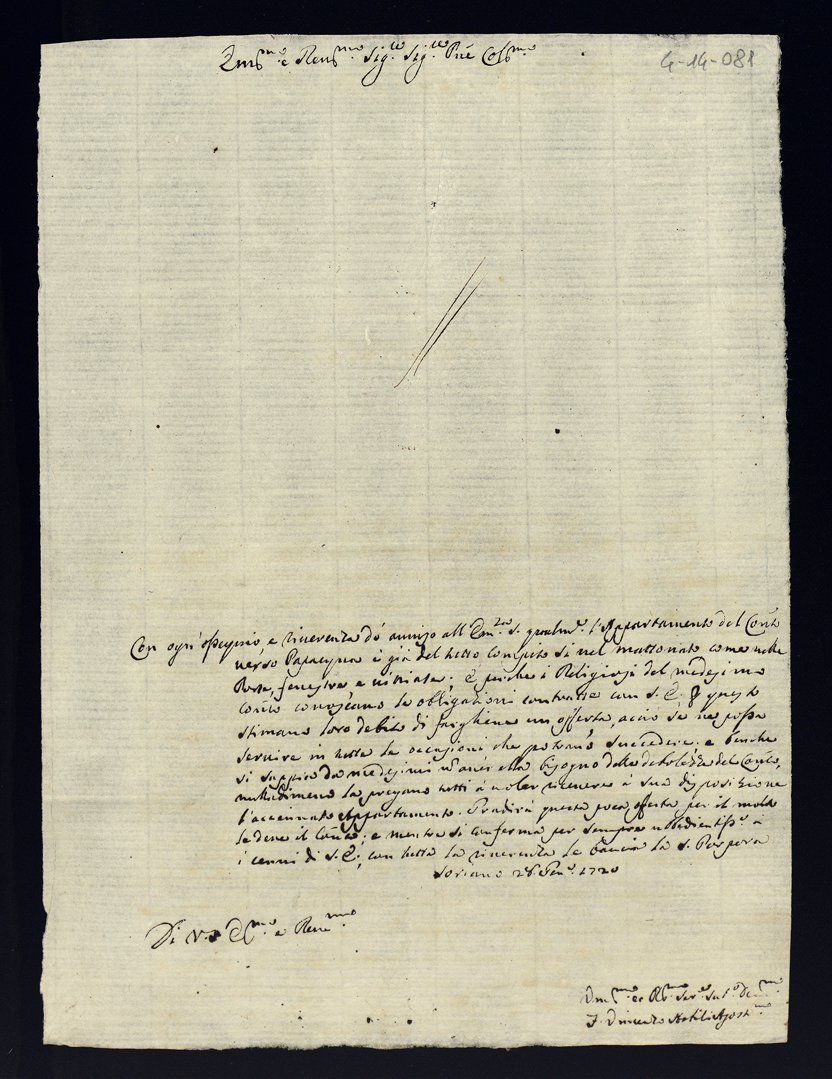 Em.mo e Rev.mo Sig.re Sig.re Prĕ Col.mo
4-14-081
Con ogni ossequio, e riverenza dò avviso all'Em.za S. l'Appartamento del Con.to
verso Papacqua è già del tutto compito sì nel mattonato come nelle
Porte, fenestre e vitriate; E perche i Religiosi del medesimo
con.to conoscano le obligazioni contratte con S. E. questo
stimano loro debito di fargliene un offerta, acciò se ne possa
servire in tutte le occasioni che potrano succedere; e benche
si sappia da medesimi non aver ella bisogno delle debolezze del Con.to,
nulladimeno la pregano tutti à voler ricevere à sua disposizione
l'accennato Appartamento. Gradirà questa poca offerta per il molto
le deve il Con.to; e mentre si conferma per sempre ubbidientiss.o à
i cenni di S. E., con tutta la riverenza le baccia la S. Porpora
Soriano 26. Gen.o 1720
Di V.a Em.za e Rev.ma
Um.mo et Ob.mo Ser.re
F. Agost.no